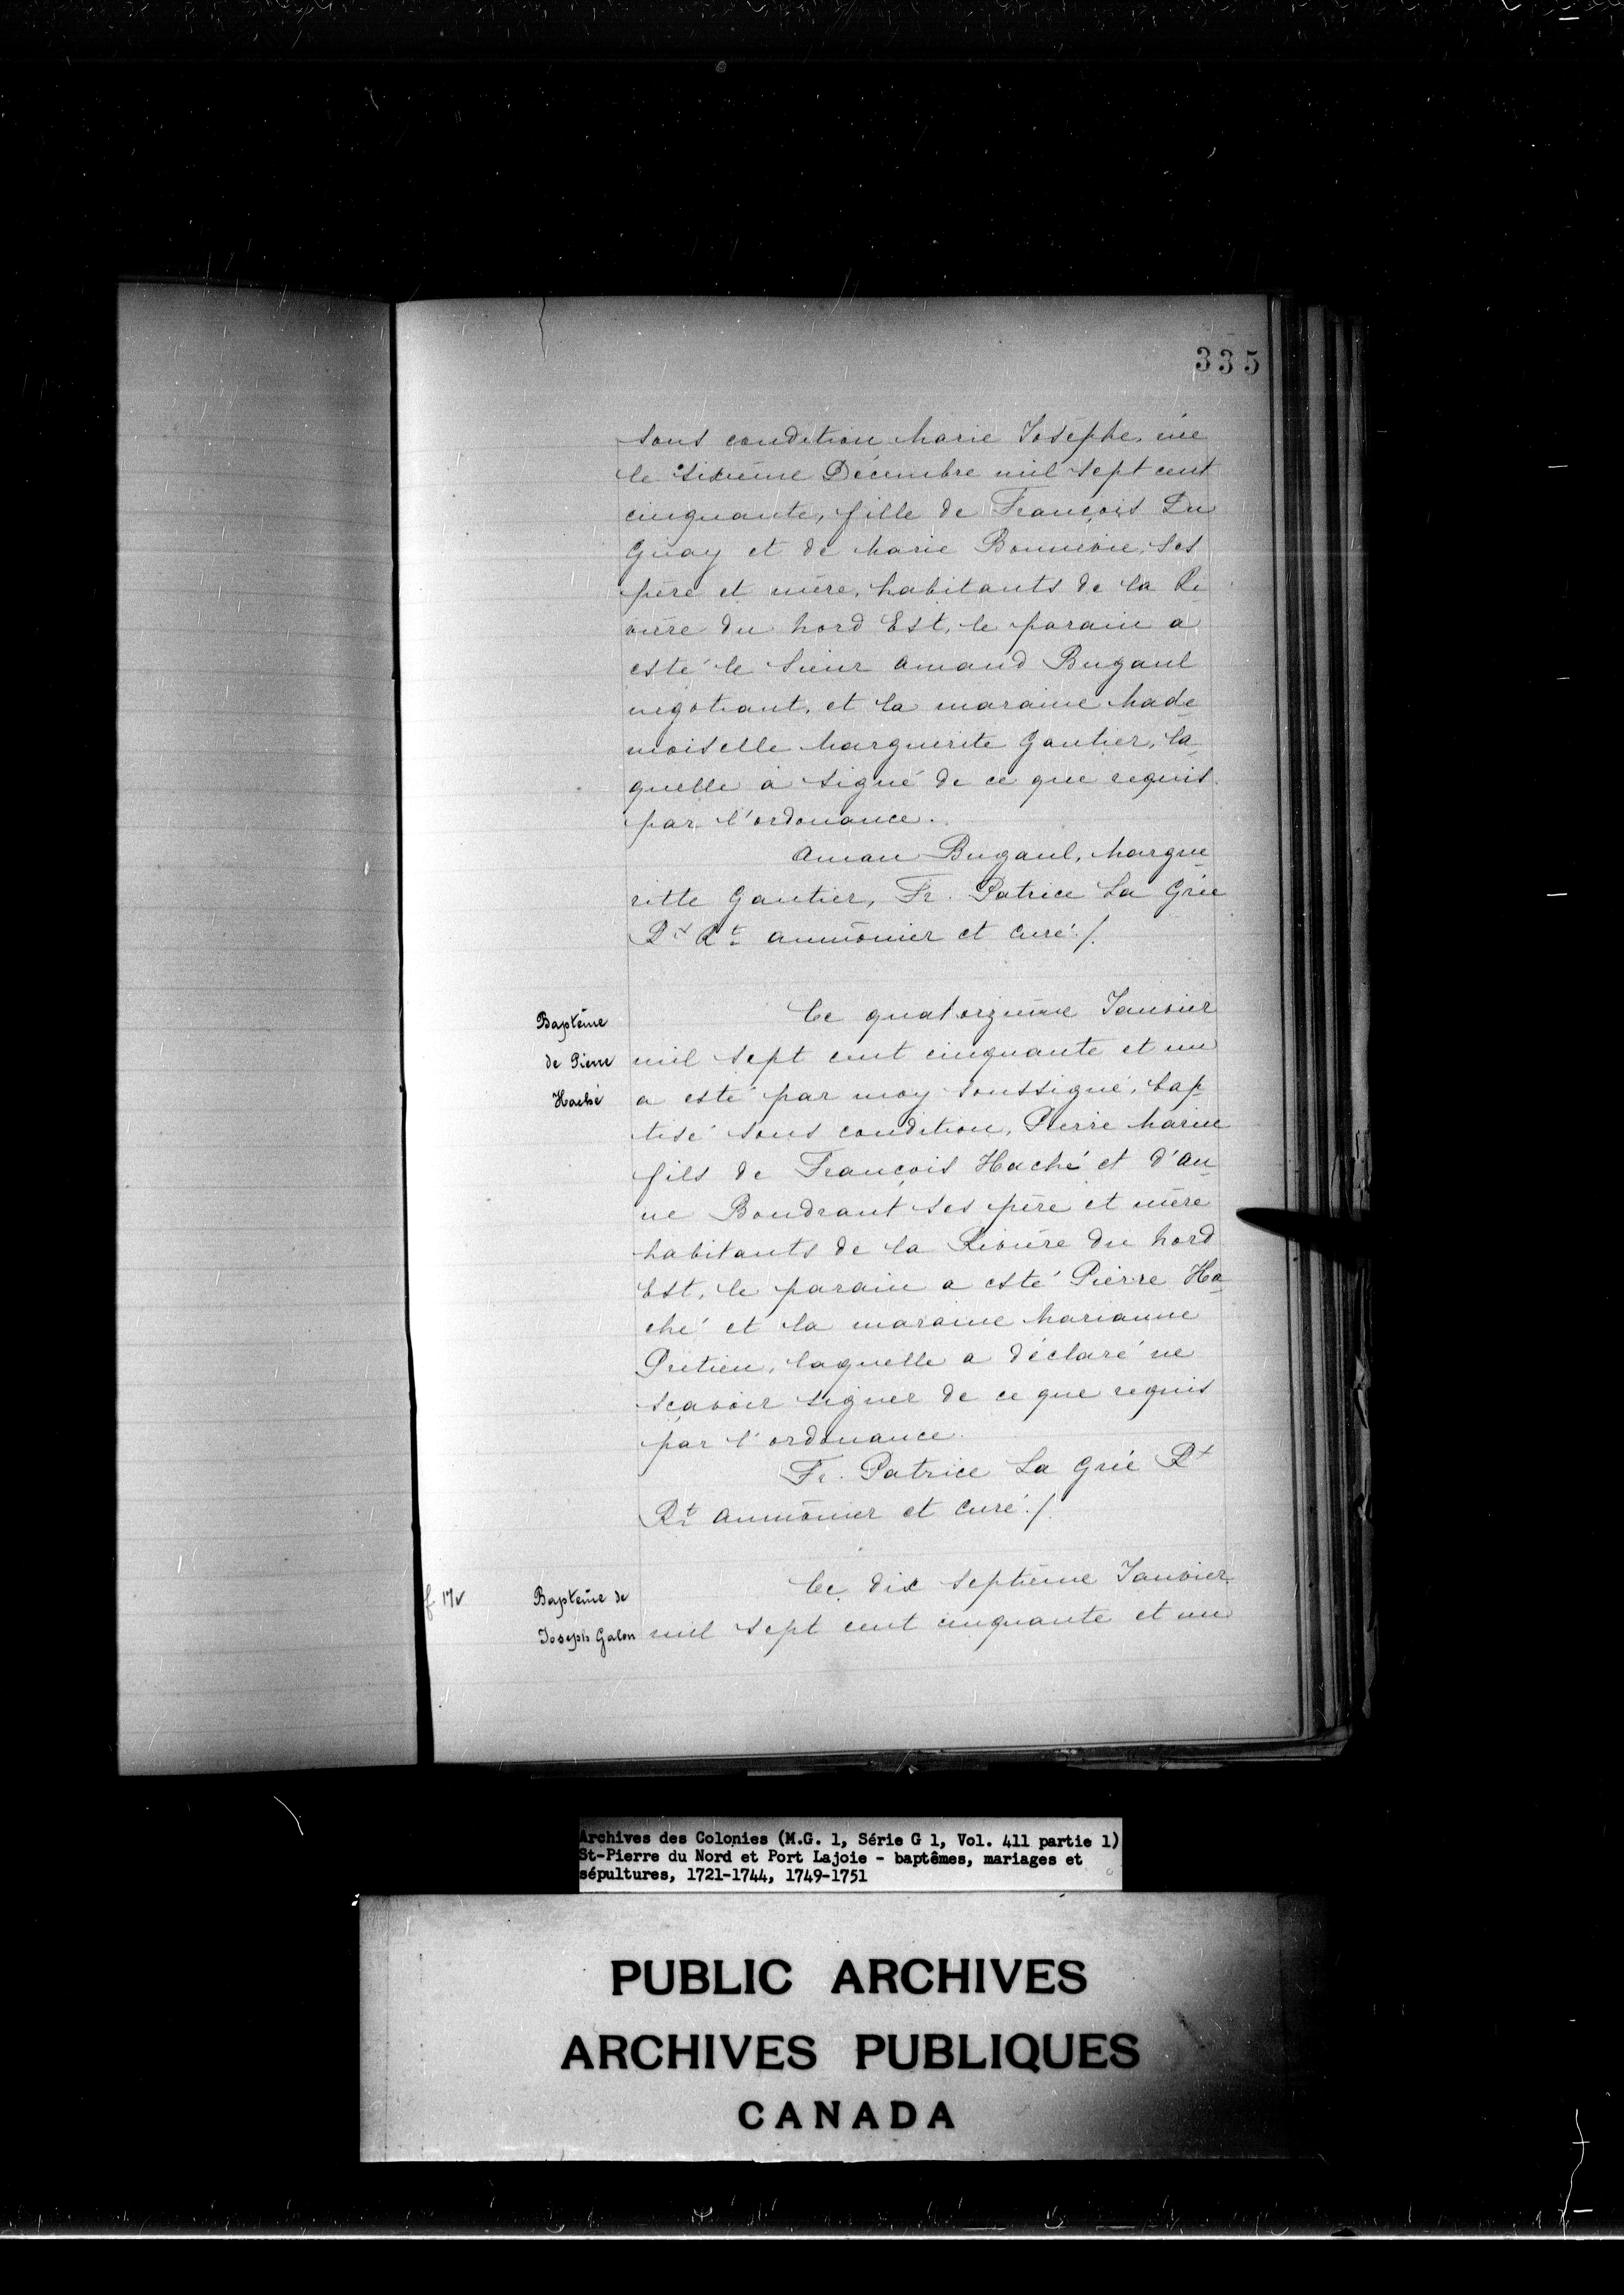 335
sous condition Marie Josephe, née
le sixième Décembre mil sept cent
cinquante, fille de François Du
Guay et de Marie Bonnevie, ses
père et mère, habitants de la Ri
vière du Nord Est, le parain a
esté le Sieur Amand Bugaul
negotiant, et la maraine Made
moiselle Marguerite Gautier, la
quelle a signé de ce que requis
par l'ordonance.
Aman Bugaul, Margue
ritte Gautier, Fr. Patrice La Grée
Rt aumônier et curé ./.
Baptême
de Pierre
Haché
Ce quatorzième Janvier
mil sept cent cinquante et un
a esté par moy soussigné, bap
tisé sous condition, Pierre Marie
fils de François Haché et d'An
ne Boudraut ses père et mère
habitants de la Rivière du Nord
Est, le parain a esté Pierre Ha
ché et la maraine Marianne
Pretieu, laquelle a déclaré ne
sçavoir signer de ce que requis
par l'ordonance.
Fr. Patrice La Grée
Rt aumônier et curé ./.
f 17v
Baptême de
Joseph Galon
Ce dix septième Janvier
mil sept cent cinquante et un
Archives des Colonies (M.G. 1, Série G 1, Vol. 411 partie 1)
St-Pierre du Nord et Port Lajoie - baptêmes, mariages et
sépultures, 1721-1744, 1749-1751
PUBLIC ARCHIVES
ARCHIVES PUBLIQUES
CANADA